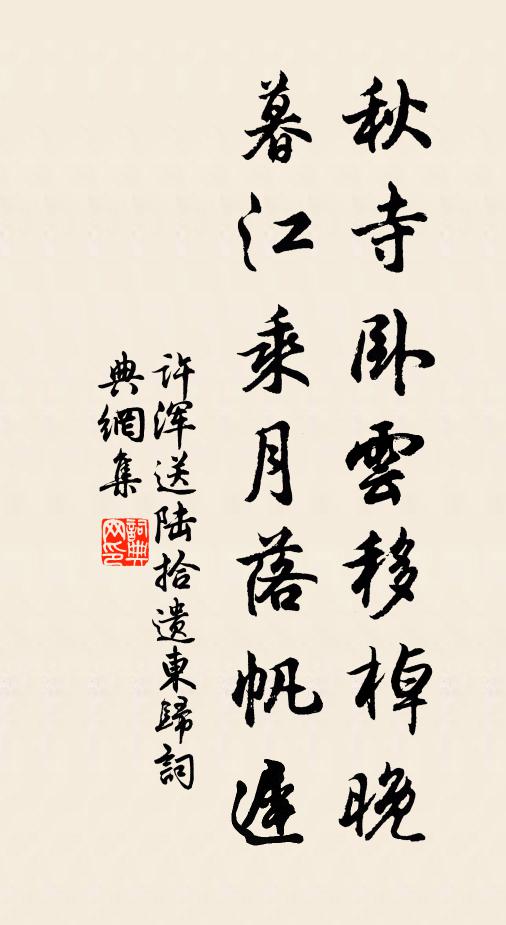 秋寺卧雲移棹晚
暮江乘月落帆遲
許渾送陸拾遺東歸詞
典網集
詞典網印